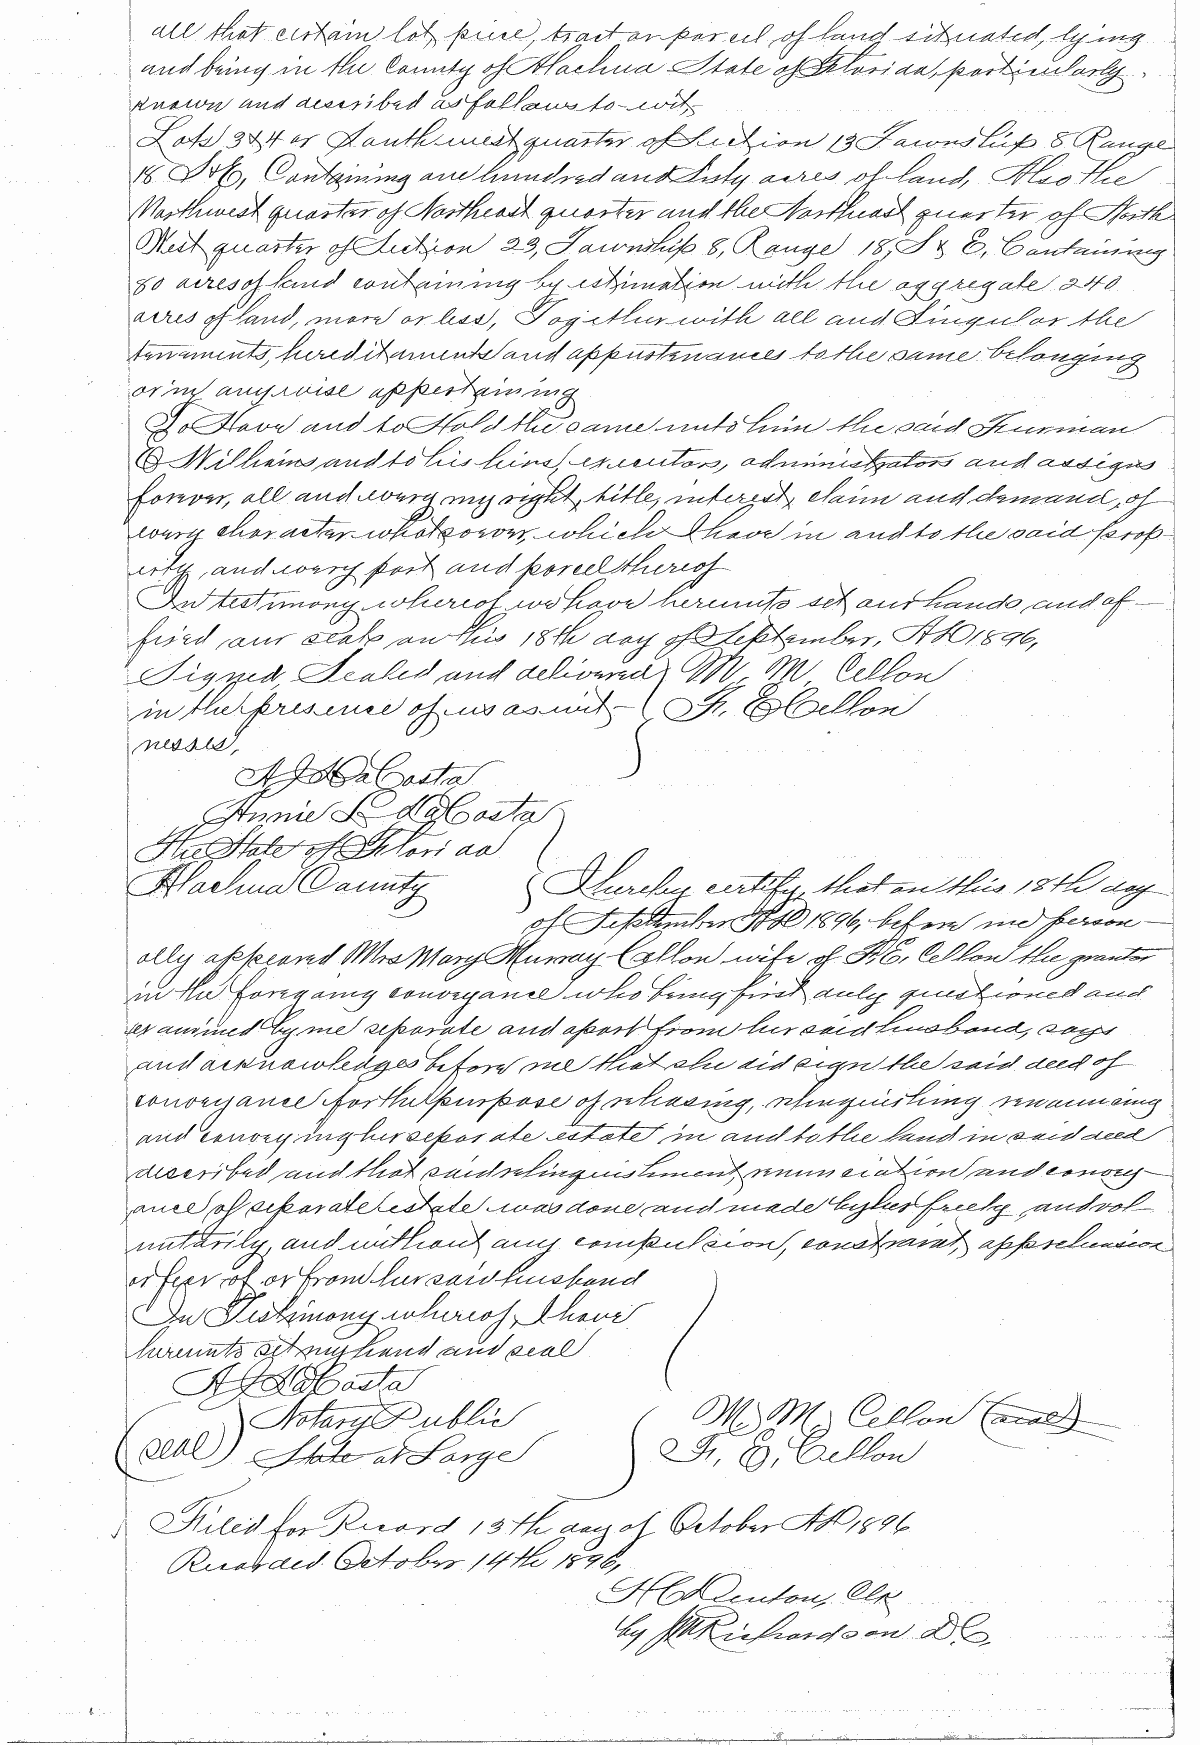 all that certain lot, piece, tract or parcel, of land situated, lying
and being in the County of Alachua State of Florida, particularly
known and described as follows to-wit
Lots 3 & 4 or South west quarter of Section 13 Township 8 Range
18 S & E, Containing one hundred and Sixty acres of land, Also the
Northwest quarter of Northeast quarter and the Northeast quarter of North
West quarter of Section 23, Township 8, Range 18, S & E, Containing
80 acres of land containing by estimation with the aggregate 240
acres of land, more or less, Together with all and Singular the
tenaments, hereditaments and appurtenances to the same belonging
or in anywise appertaining
To Have and to Hold the same unto him the said Furman
Williams and to his heirs, executors, administrators and assigns
forever, all and every my right, title, interest, claim and demand, of
every character whatsoever, which I have in and to the said prop
erty, and every part and parcel thereof
In testimony whereof we have hereunto set our hands, and af-
fixed our seals on this 18th day of September, AD 1896,
Signed, Sealed and delivered M. M. Cellon
in the presence of us as wit- F. E Cellon
nesses,
A J DaCosta
Annie L daCosta
The State of Florida
Alachua County I hereby certify, that on this 18th day
of September AD 1896, before me person-
ally appeared Mrs Mary Murray Cellon wife of F. E. Cellon the grantor
in the foregoing conveyance who being first duly questioned and
examined by me separate and apart from her said husband, says
and acknowledges before me that she did sign the said deed of
conveyance for the purpose of releasing, relinquishing renouncing
and conveying her separate estate in and to the land in said deed
described and that said relinquishment, renunciation and convey-
ance of separate estate was done and made by her freely, and vol-
untarily, and without any compulsion, constraint, apprehension
or fear of or from her said husband
In Testimony whereof, I have
hereunto set my hand and seal
A J DaCosta
Notary Public M. M. Cellon (seal)
(seal) State at Large F. E. Cellon
Filed for Record 13th day of October AD 1896
Recorded October 14th 1896,
H C Denton, Clk
by Richardson D C,